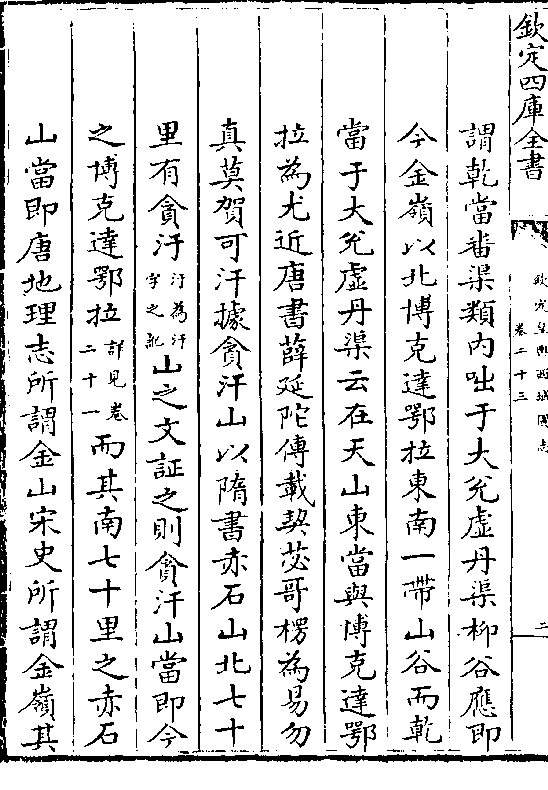 欽定四庫全書
欽定皇輿西域圖志
卷二十三
二
謂乾當番渠類内咄于大兊虚丹渠柳谷應即
今金嶺以北博克達鄂拉東南一帶山谷而乾
當于大兊虚丹渠云在天山東當與博克達鄂
拉為尤近唐書薛延陀傳載契苾哥楞為易勿
真莫賀可汗據貪汗山以隋書赤石山北七十
里有貪汙汙為汗字之訛山之文証之則貪汗山當即今
之博克達鄂拉詳見卷二十一而其南七十里之赤石
山當即唐地理志所謂金山宋史所謂金嶺其